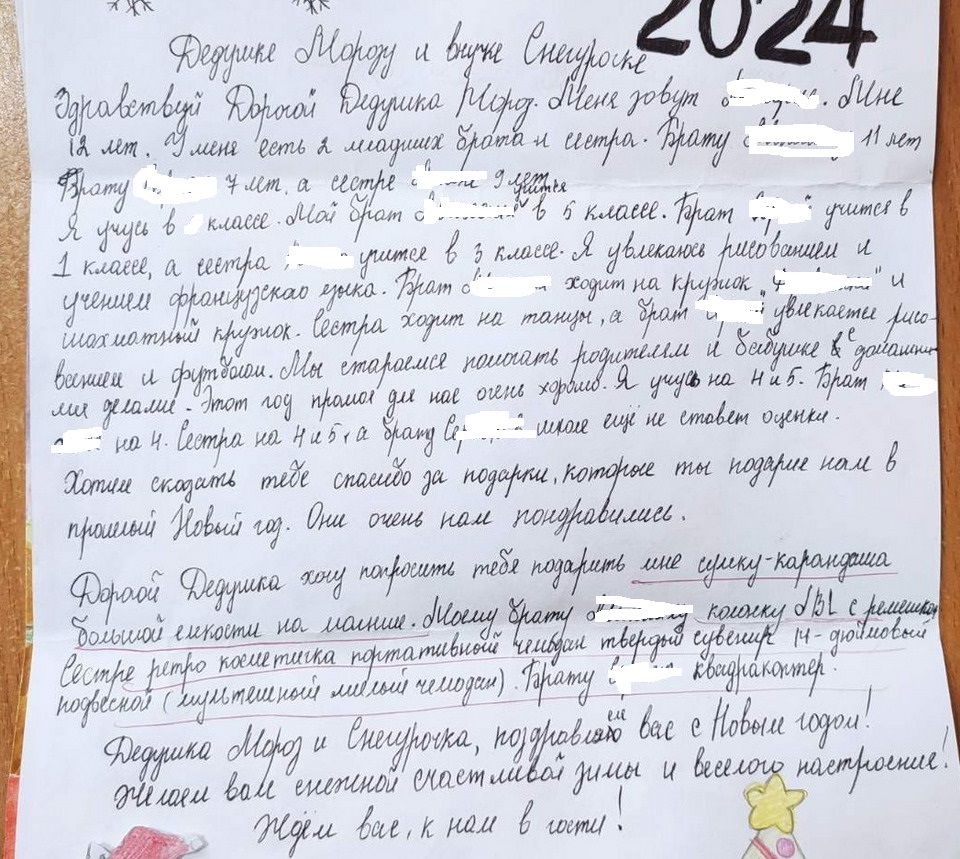 2024
Дедушке Морозу и внучке Снегуроске
Здравствуй Дорогой Дедушка Мороз. Меня зовут. Мне
12 лет. У меня есть 2 младших брата и сестра. Брату 11 лет
Брату 7 лет, а сестре 9 лет
Я учусь в классе. Мой брат учится в 5 классе. Брат учится в
1 классе, а сестра учится в 3 классе. Я увлекаюсь рисованием и
учением французского языка. Брат ходит на кружок " " и
шахматный кружок. Сестра ходит на танцы, а брат увлекается рисо-
ванием и футболом. Мы стараемся помогать родителям и бабушке с домашни-
ми делами. Этот год прошёл для нас очень хорошо. Я учусь на 4 и 5. Брат
на 4. Сестра на 4 и 5, а брату школе ещё не ставят оценки.
Хотим сказать тебе спасибо за подарки, которые ты подарил нам в
прошлый Новый год. Они очень нам пондравились.
Дорогой Дедушка хочу попросить тебя подарить мне сумку-карандаша
большой емкости на молнии. Моему брату колонку JBL с ремешком
Сестре ретро косметичка портативной чемодан твердый сувенир 14-дюймовый
подвесной (мультяшной милый чемодан). Брату квадракоптер.
Дедушка Мороз и Снегурочка, поздравляем вас с Новым годом!
Желаем вам снежной счастливой зимы и веселого настроение!
Ждём вас, к нам в гости!